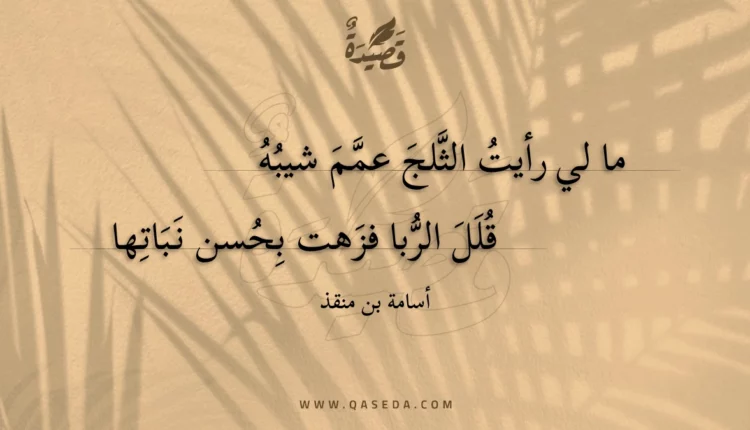 قَصِيْدَةٌ
ما لي رأيتُ الثَّلجَ عمَّمَ شيبُهُ
قُلَلَ الرُّبا فزَهت بِحُسن نَبَاتِها
أسامة بن منقذ
WWW.QASEDA.COM